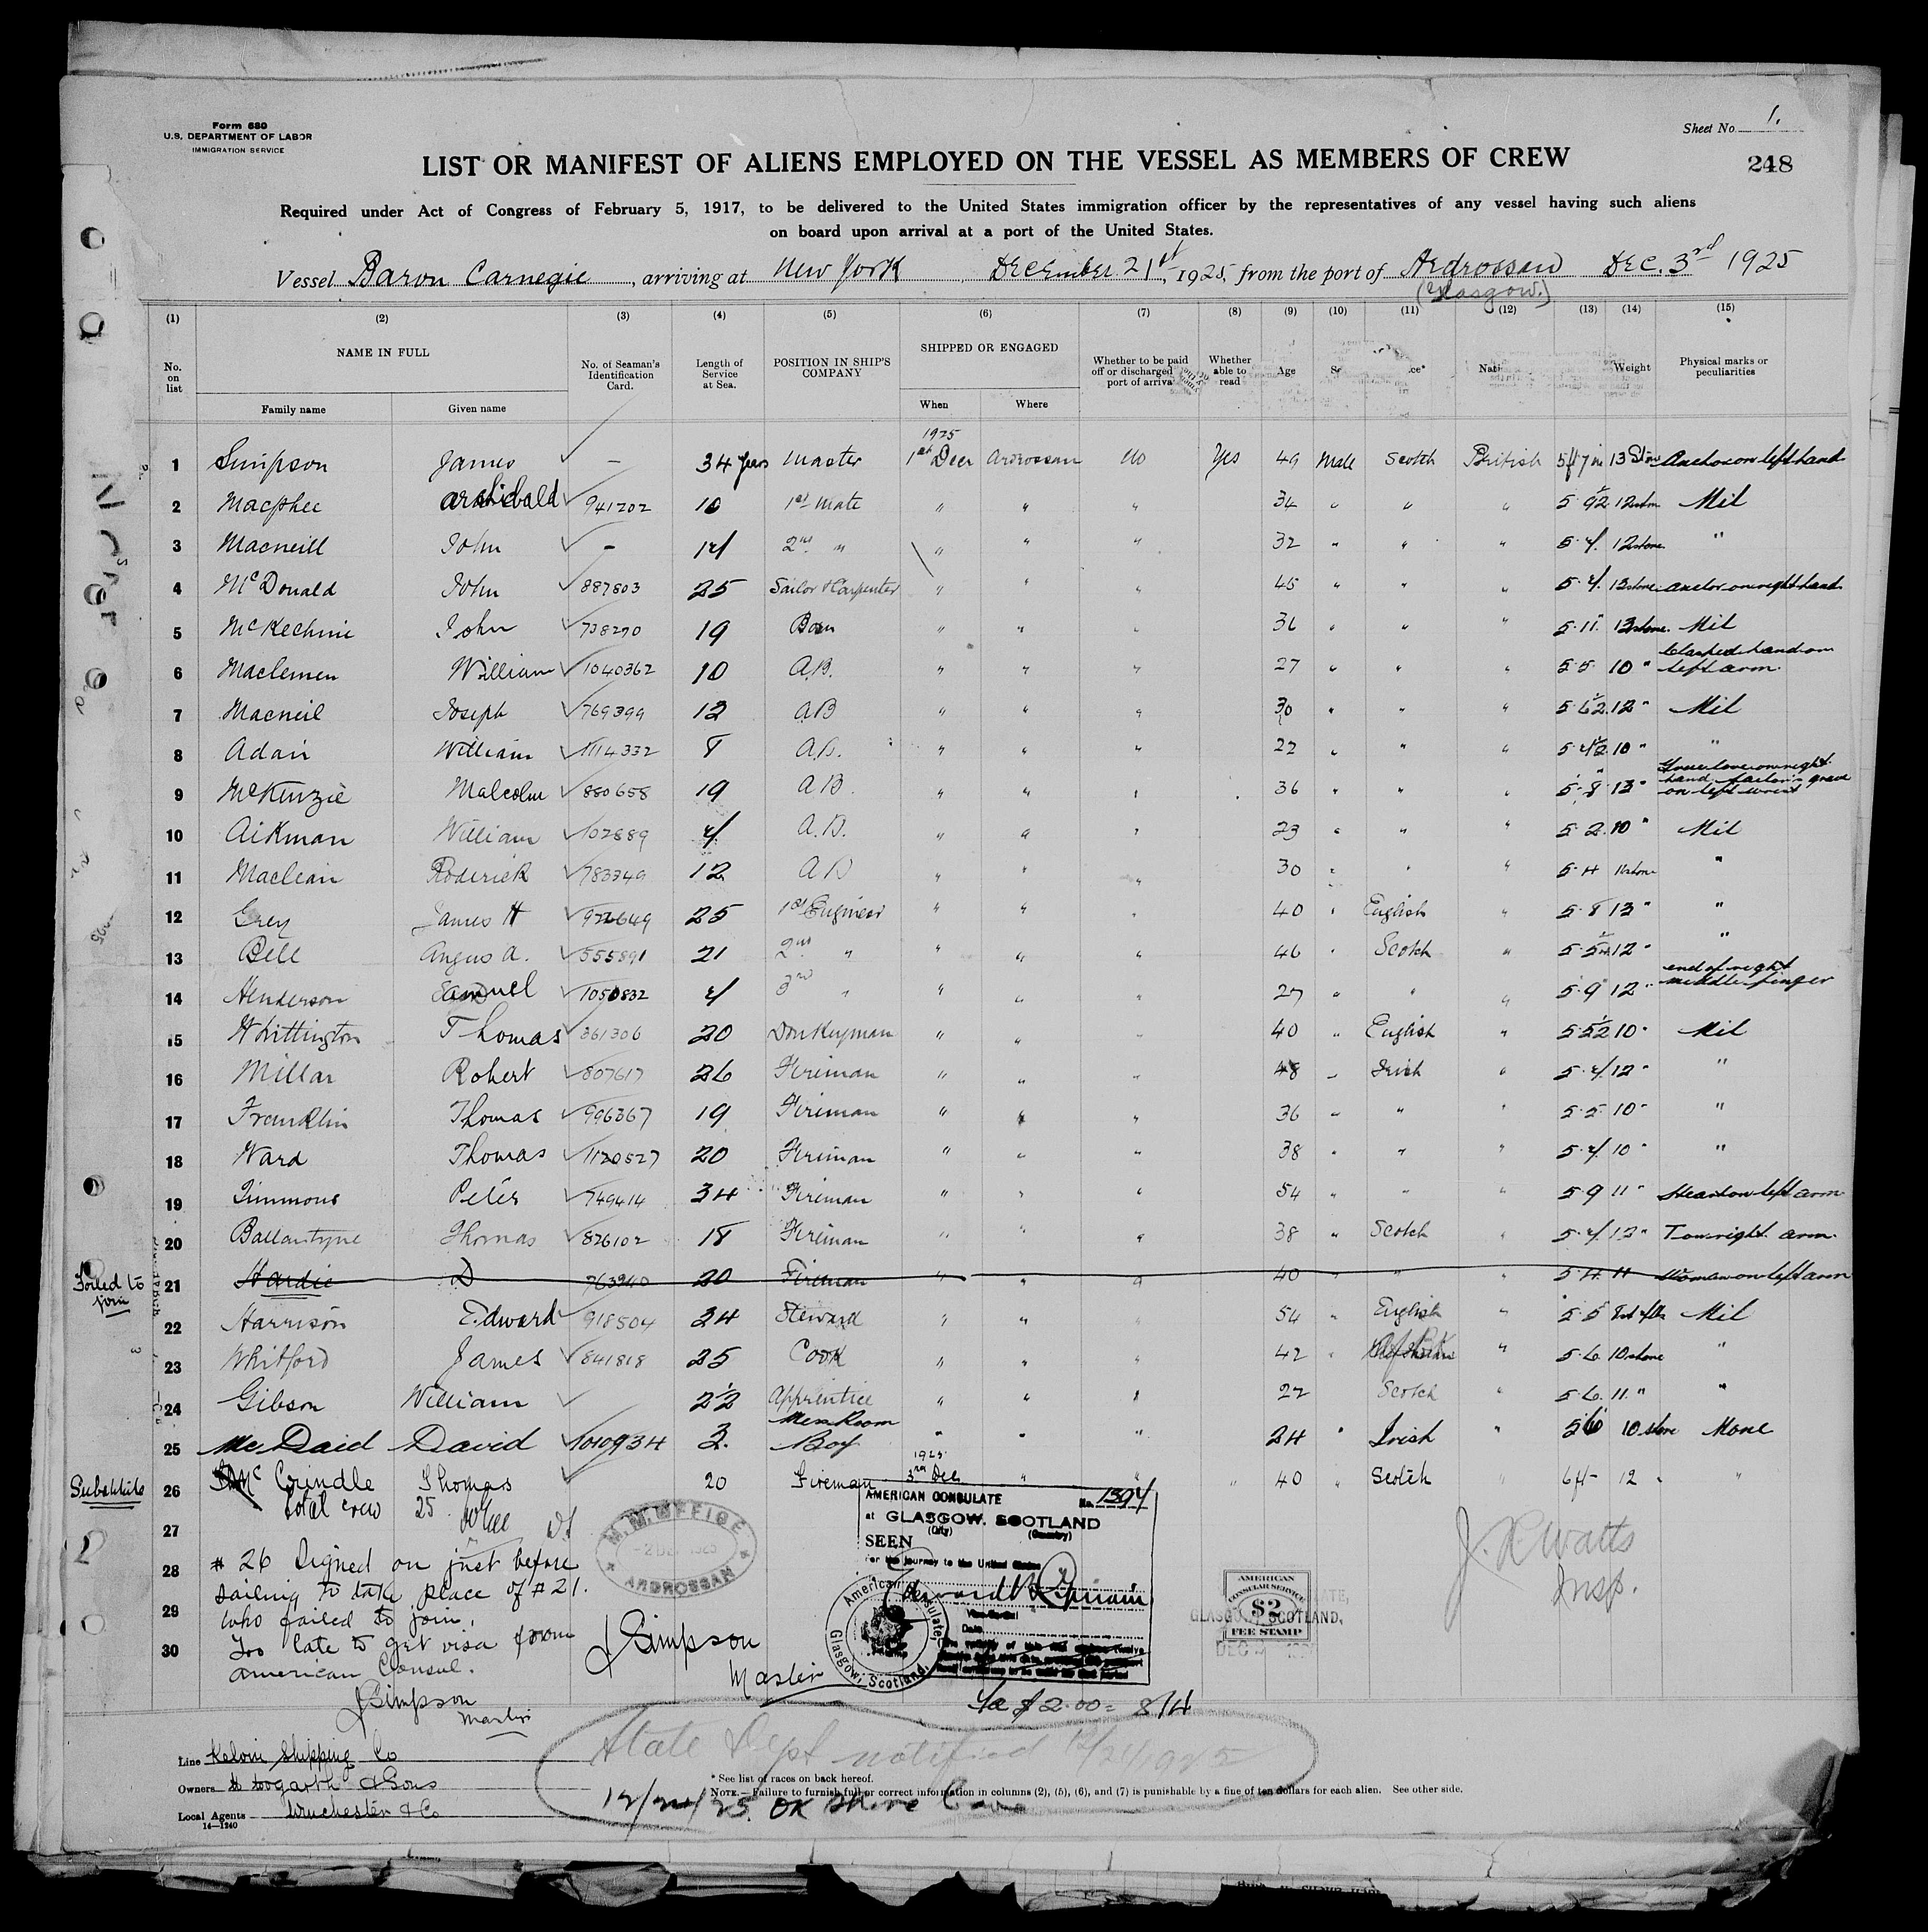 Form 680
U.S. DEPARTMENT OF LABOR
IMMIGRATION SERVICE
Sheet No. 1.
LIST OR MANIFEST OF ALIENS EMPLOYED ON THE VESSEL AS MEMBERS OF CREW
248
Required under Act of Congress of February 5, 1917, to be delivered to the United States immigration officer by the representatives of any vessel having such aliens
on board upon arrival at a port of the United States.
Vessel Baron Carnegie, arriving at New York December 21st, 1925, from the port of Ardrossan Dec. 3rd 1925
(Glasgow.)
(1) (2) (3) (4) (5) (6) (7) (8) (9) (10) (11) (12) (13) (14) (15)
No. on list NAME IN FULL No. of Seaman's Identification Card. Length of Service at Sea. POSITION IN SHIP'S COMPANY SHIPPED OR ENGAGED Whether to be paid off or discharged port of arrival Whether able to read Age Weight Physical marks or peculiarities
Family name Given name When Where
1925
1 Simpson James – 34 years Master 1st Decr Ardrossan No Yes 49 Male Scotch British 5ft 7in 13 Stone Anchor on left hand
2 Macphee Archibald 941202 10 1st Mate " " " 34 " " " 5 9½ 12 stone Nil
3 Macneill John – 14 2nd " " " " 32 " " " 5.4. 12 stone "
4 McDonald John 887803 25 Sailor & Carpenter " " " 45 " " " 5.4. 13 stone anchor on right hand
5 McKechnie John 738290 19 Bosn " " " 36 " " " 5.11. 13 stone. Nil
6 Maclemen William 1040362 10 A.B. " " " 27 " " " 5.5. 10 " Clasped hand on left arm.
7 Macneil Joseph 769399 12 AB " " " 30 " " " 5.6½ 12 " Nil
8 Adair William 1114332 8 A.B. " " " 22 " " " 5.4½ 10 " "
9 McKenzie Malcolm 880658 19 AB. " " " 36 " " " 5.8 13 " True love on right hand. Sailor's grave on left wrist
10 Aikman William 102889 4 A.B. " " " 23 " " " 5.2. 10 " Nil
11 Maclean Roderick 783349 12 AB " " " 30 " " " 5.4 11 stone "
12 Grey James H 922649 25 1st Engineer " " " 40 " English " 5.8 13 " "
13 Bell Angus A. 555891 21 2nd " " " " 46 " Scotch " 5.5½ 12 " "
14 Henderson Samuel 1050832 4 3rd " " " " 27 " " " 5.9 12 " end of right middle finger
15 Whittington Thomas 361306 20 Donkeyman " " " 40 " English " 5.5½ 10 " Nil
16 Millar Robert 807617 26 Fireman " " " 48 " Irish " 5.4 12 " "
17 Franklin Thomas 996367 19 Fireman " " " 36 " " " 5.5. 10 " "
18 Ward Thomas 1120527 20 Fireman " " " 38 " " " 5.4. 10 " "
19 Timmons Peter 749414 34 Fireman " " " 54 " " " 5 9 11 " Heart on left arm
20 Ballantyne Thomas 826102 18 Fireman " " " 38 " Scotch " 5.4 12 " T on right arm.
Failed to join
21 Hardie D 763940 20 Fireman " " " 40 " " " 5.4. 11 Woman on left arm
22 Harrison Edward 918504 34 Steward " " " 54 " English " 5 5 Nil
23 Whitford James 841818 25 Cook " " " 42 " " 5.6. 10 stone "
24 Gibson William 2½ Apprentice " " " 22 Scotch " 5.6. 11. " "
25 McDaid David 1010934 3. Mess Room Boy " " " 24 " Irish " 5'6" 10 stone None
Substitute
26 McCrindle Thomas 20 Fireman 1925 3rd Dec " " " 40 " Scotch " 6ft – 12 " "
27 Total crew 25
28 # 26 Signed on just before
sailing to take place of # 21.
29 who failed to join.
30 Too late to get visa from
American Consul.
J Simpson
Master
M.M. OFFICE
ARDROSSAN
J Simpson
Master
AMERICAN CONSULATE No. 1394
at GLASGOW, SCOTLAND
(City) (Country)
SEEN
For the journey to the United States
Vice Consul
Date
American Consulate, Glasgow, Scotland.
AMERICAN
CONSULAR SERVICE
$2
FEE STAMP
GLASGOW, SCOTLAND,
DEC
J. R Watts
Insp.
$2.00 = 8/4
State Dept notified 12/21/1925
Line Kelvin Shipping Co
Owners H Hogarth & Sons
Local Agents Winchester & Co
14—1240
* See list of races on back hereof.
NOTE.—Failure to furnish full or correct information in columns (2), (5), (6), and (7) is punishable by a fine of ten dollars for each alien. See other side.
OK Shore